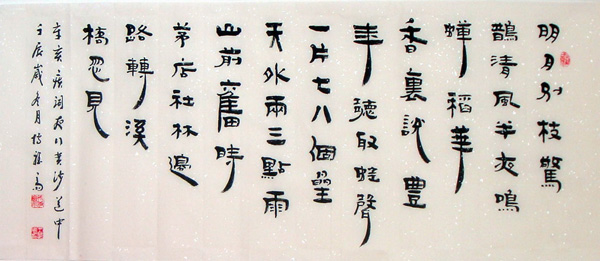 明月別枝驚
鵲清風半夜鳴
蟬稻華
香裏說豐
年聽取蛙聲
一片七八個星
天外兩三點雨
山前舊時
茅店社林邊
路轉溪
橋忽見
辛弃疾詞夜行黄沙道中
壬辰歲冬月